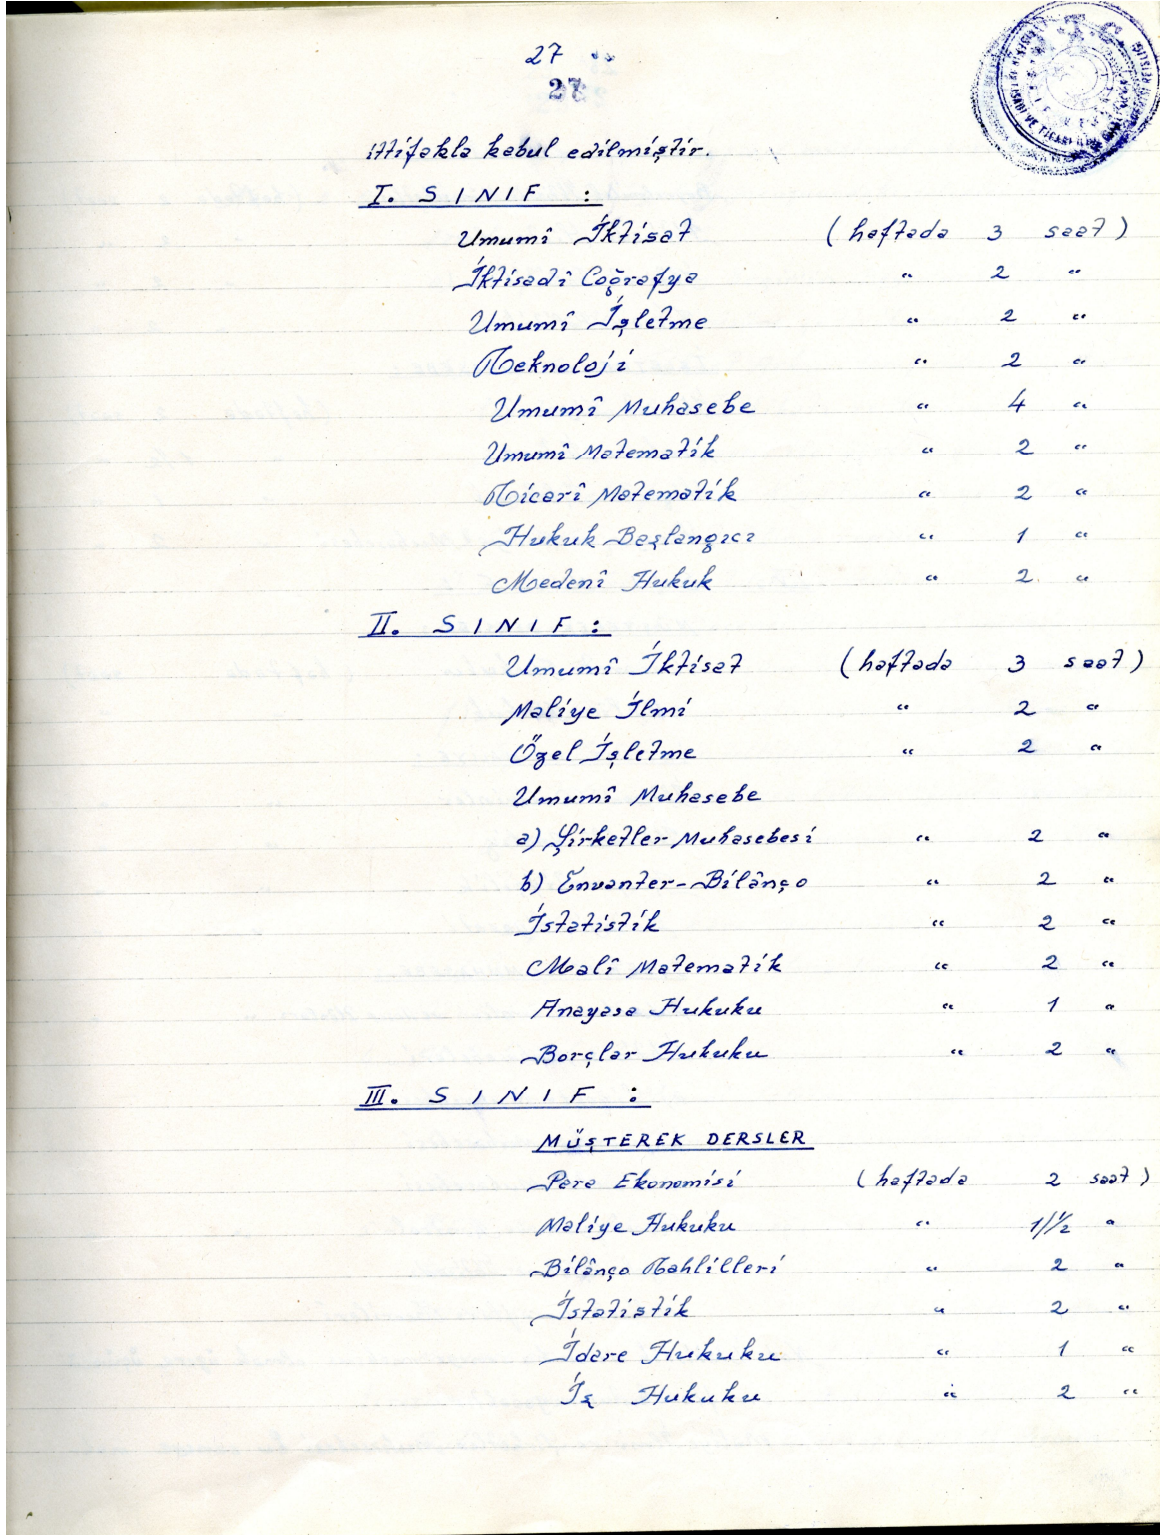 27
27
ittifakla kabul edilmiştir.
I. SINIF :
Umumî İktisat (haftada 3 saat)
İktisadî Coğrafya " 2 "
Umumî İşletme " 2 "
Teknoloji " 2 "
Umumî Muhasebe " 4 "
Umumî Matematik " 2 "
Ticarî Matematik " 2 "
Hukuk Başlangıcı " 1 "
Medenî Hukuk " 2 "
II. SINIF :
Umumî İktisat (haftada 3 saat)
Maliye İlmi " 2 "
Özel İşletme " 2 "
Umumî Muhasebe
a) Şirketler Muhasebesi " 2 "
b) Envanter-Bilânço " 2 "
İstatistik " 2 "
Malî Matematik " 2 "
Anayasa Hukuku " 1 "
Borçlar Hukuku " 2 "
III. SINIF :
MÜŞTEREK DERSLER
Para Ekonomisi (haftada 2 saat)
Maliye Hukuku " 1 1/2 "
Bilânço Tahlilleri " 2 "
İstatistik " 2 "
İdare Hukuku " 1 "
İş Hukuku " 2 "
T.C.